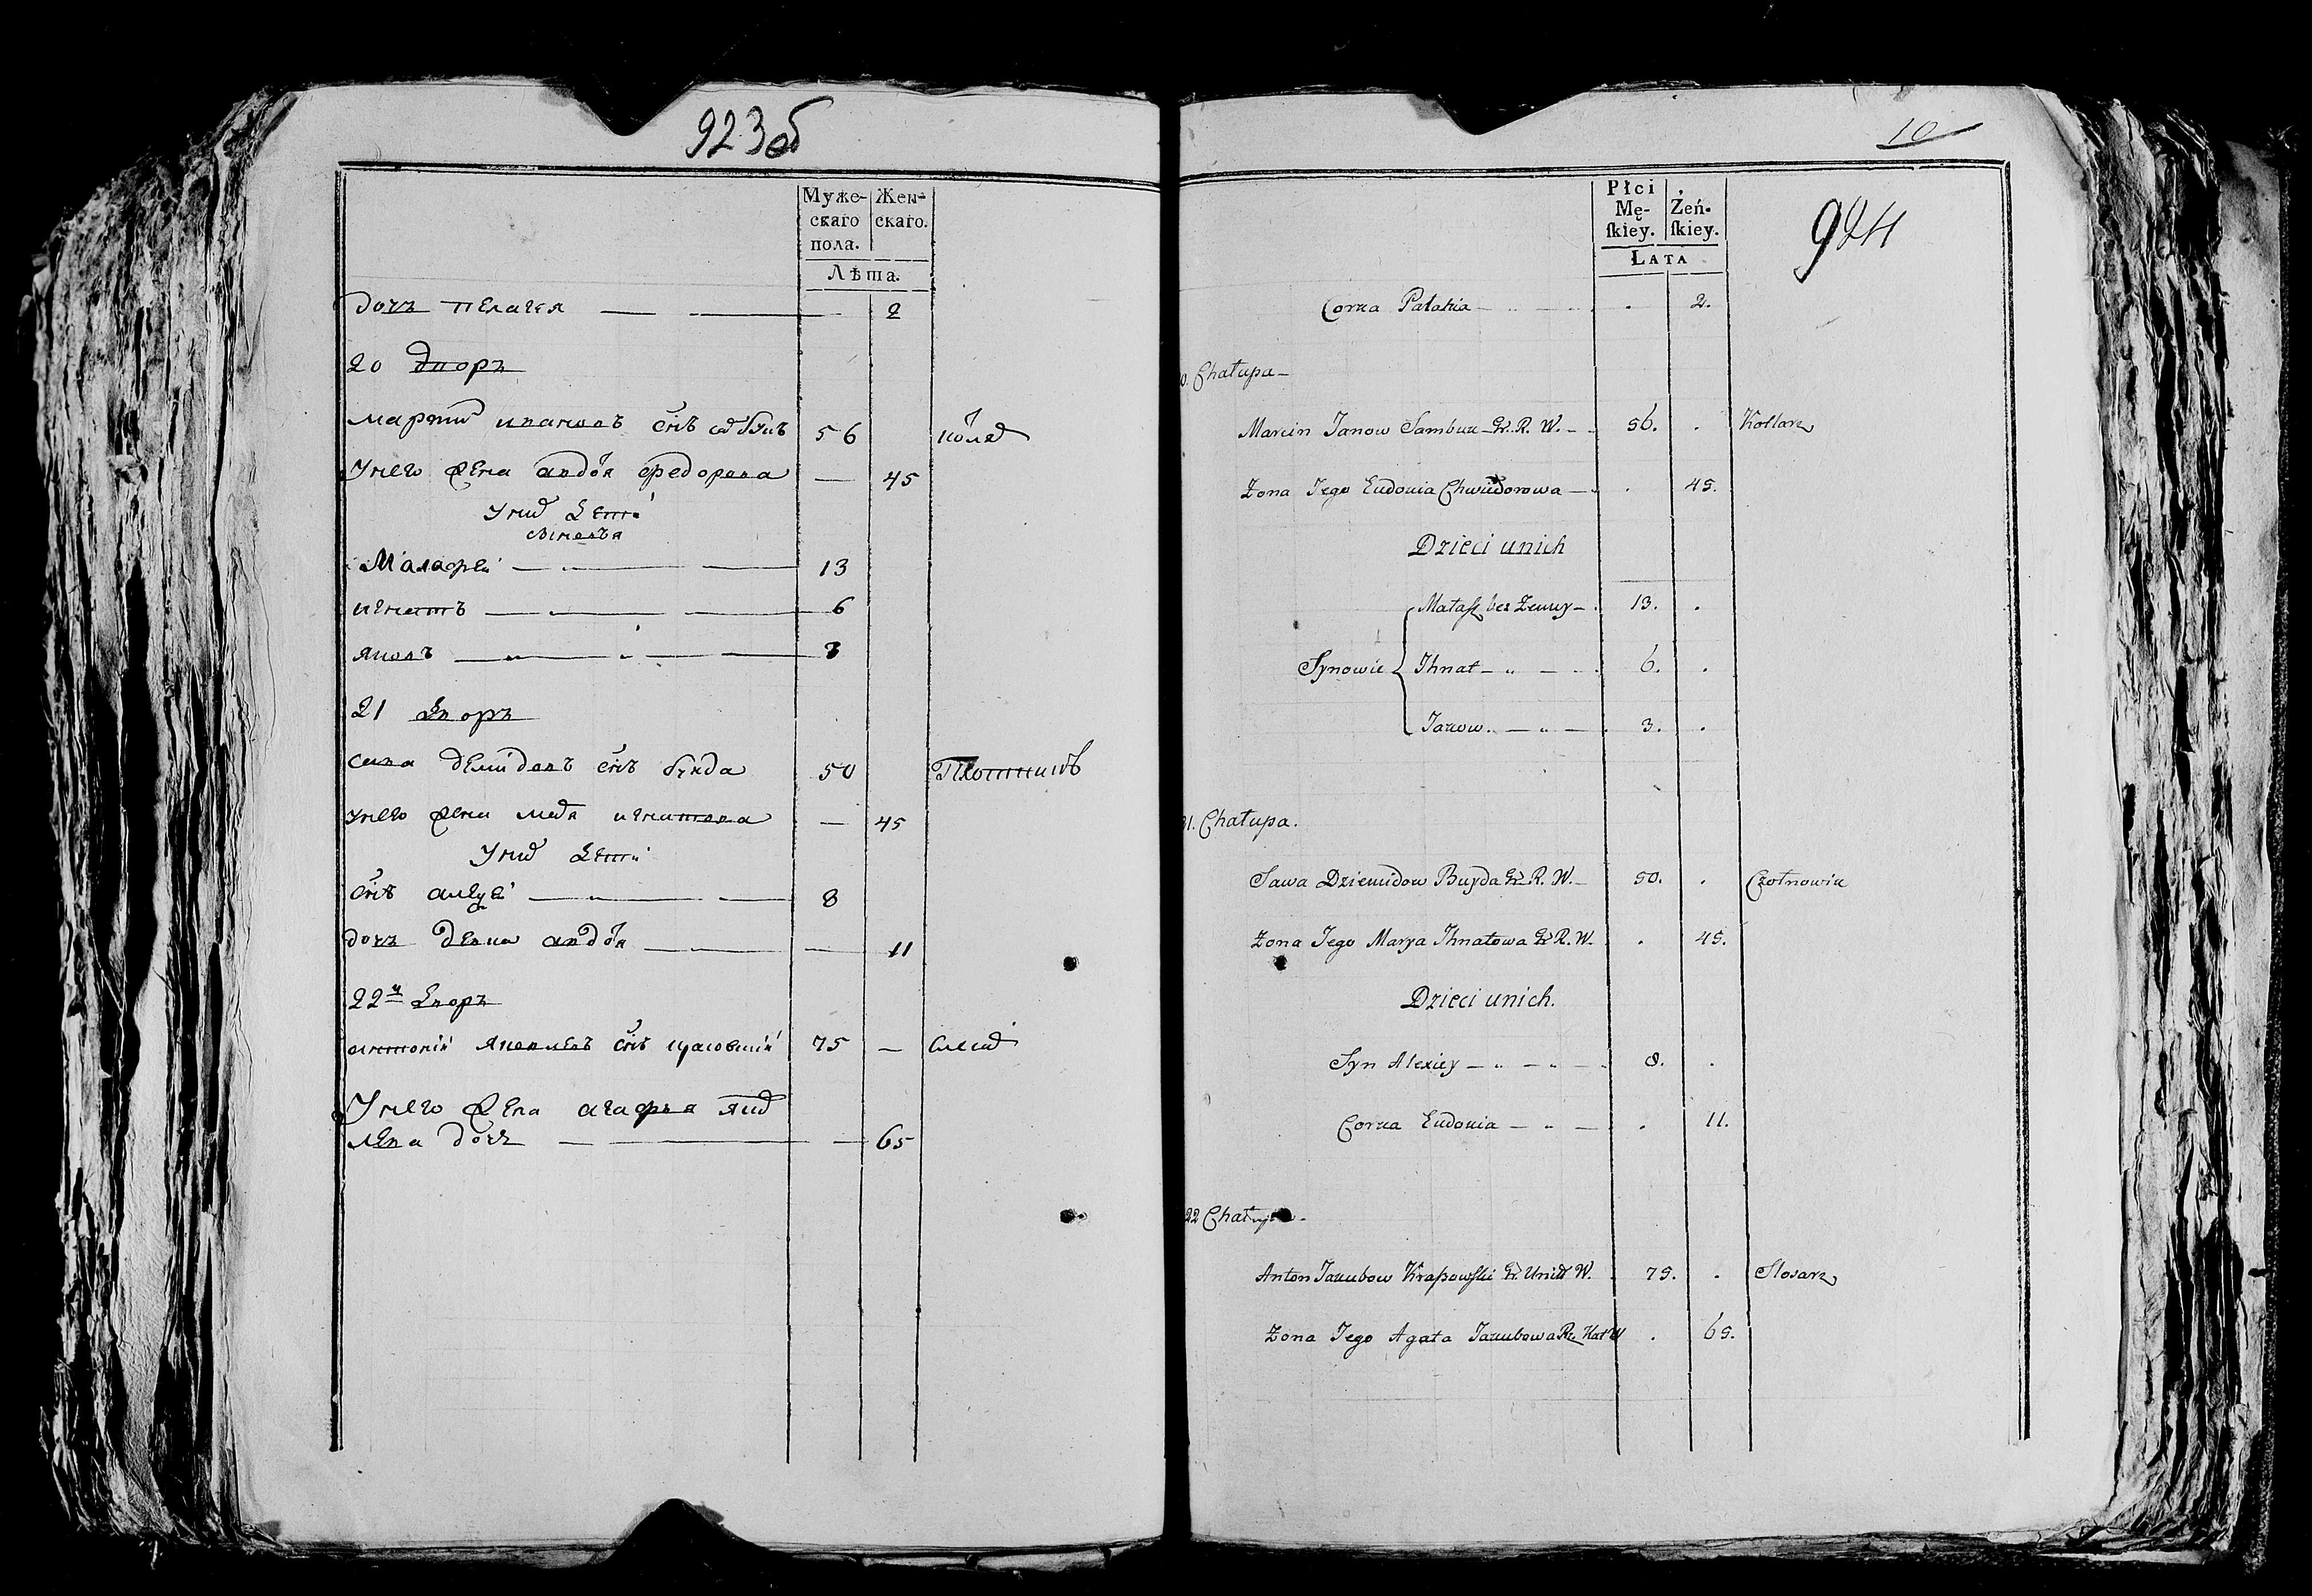 923об
Муже-
скаго
пола.
Жен-
скаго.
Лѣта.
дочь пелагея — — — 2
20 дворъ
мартин ивановъ снъ самбукъ 56 коляд
Унего жена авдоя федорова — 45
Уних дети
сыновъя
Малафеи — — — 13
игнатъ — — — 6
яковъ — — — 3
21 дворъ
сава демидовъ снъ буйда 50 Плотникъ
унего жена мадя игнатова — 45
Уних дети
снъ алеѯеи — — — 8
дочь девка авдоя — — — 11
22й дворъ
антоній яковлевъ снъ 75 —
Унего жена агафъя яко
лева дочь — — — 65
10
924
Płci
Mę-
ſkiey.
Żeń-
ſkiey.
LATA
Corka Pałahia — . 2.
0. Chałupa —
Marcin Janow Sambuk Gr. R. W. — 56. . Kołlarz
Zona Jego Eudokia Chwiedorowa — . 45.
Dzieci unich
Małaſz bez Zenny — 13. .
Synowie { Ihnat — 6. .
Jakow. — 3. .
21. Chałupa.
Sawa Dziemidow Buyda Gr. R. W. — 50. . Czołnowik
Zona Jego Marya Ihnatowa Gr R. W. . 45.
Dzieci unich.
Syn Alexiey — 8. .
Corka Eudokia — . 11.
22 Chałupa.
Anton Jakubow Krapowſki Gr. Unitt W. 75. . Slosarz
Zona Jego Agata Jakubowa Rz. Kat W . 65.